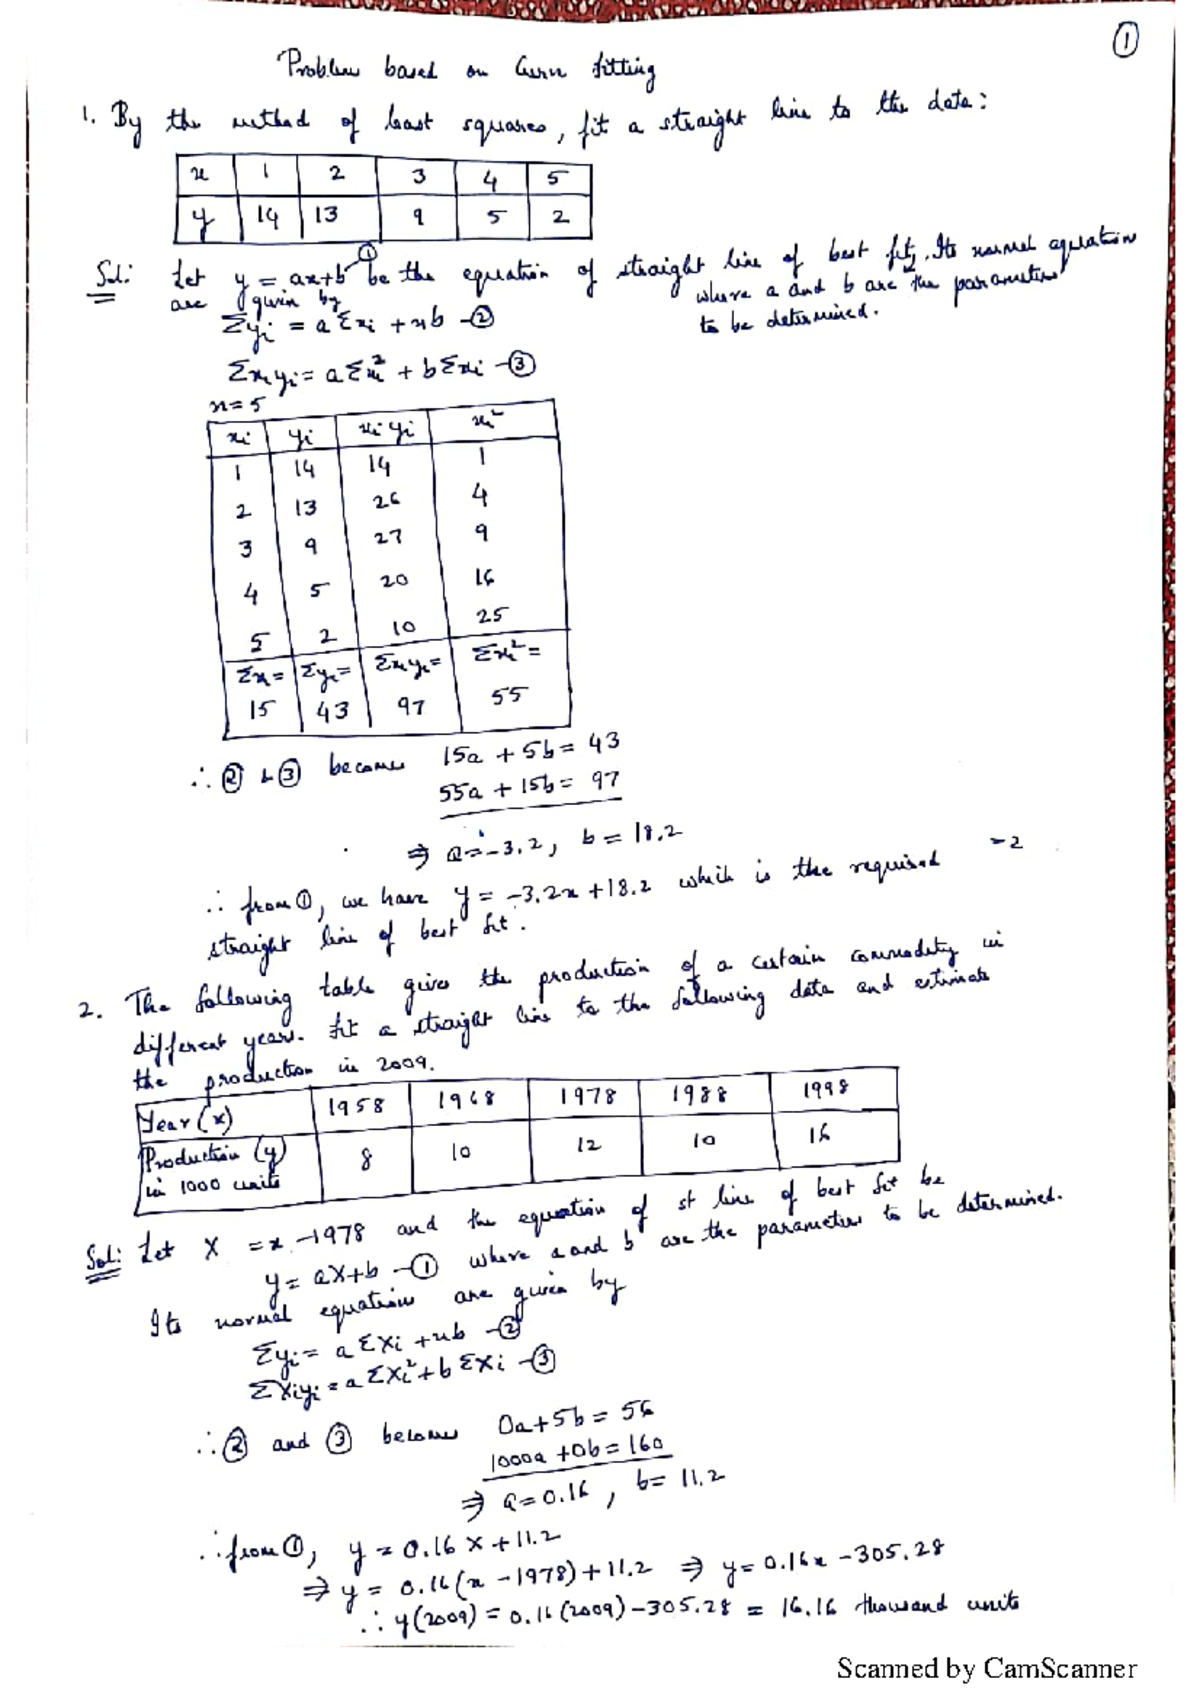 ①
Problem based on Curve fitting
1. By the method of least squares, fit a straight line to the data:
x 1 2 3 4 5
y 14 13 9 5 2
Sol: Let y = ax+b -① be the equation of straight line of best fit, Its normal equation
are given by where a and b are the parameters
to be determined.
Σyi = aΣxi + nb -②
Σxiyi = aΣxi² + bΣxi -③
n=5
xi yi xiyi xi²
1 14 14 1
2 13 26 4
3 9 27 9
4 5 20 16
5 2 10 25
Σx= Σyi= Σxiyi= Σxi²=
15 43 97 55
∴ ② & ③ becomes 15a + 5b = 43
55a + 15b = 97
⇒ a = -3.2, b = 18.2
-2
∴ from ①, we have y = -3.2x + 18.2 which is the required
straight line of best fit.
2. The following table gives the production of a certain commodity in
different years. Fit a straight line to the following data and estimate
the production in 2009.
Year (x) 1958 1968 1978 1988 1998
Production (y) 8 10 12 10 16
in 1000 units
Sol: Let X = x - 1978 and the equation of st line of best fit be
y = aX+b -① where a and b are the parameters to be determined.
Its normal equations are given by
Σyi = aΣXi + nb -②
ΣXiyi = aΣXi² + bΣXi -③
∴ ② and ③ becomes 0a + 5b = 56
1000a + 0b = 160
⇒ a = 0.16, b = 11.2
∴ from ①, y = 0.16X + 11.2
⇒ y = 0.16(x - 1978) + 11.2 ⇒ y = 0.16x - 305.28
∴ y(2009) = 0.16(2009) - 305.28 = 16.16 thousand units
Scanned by CamScanner